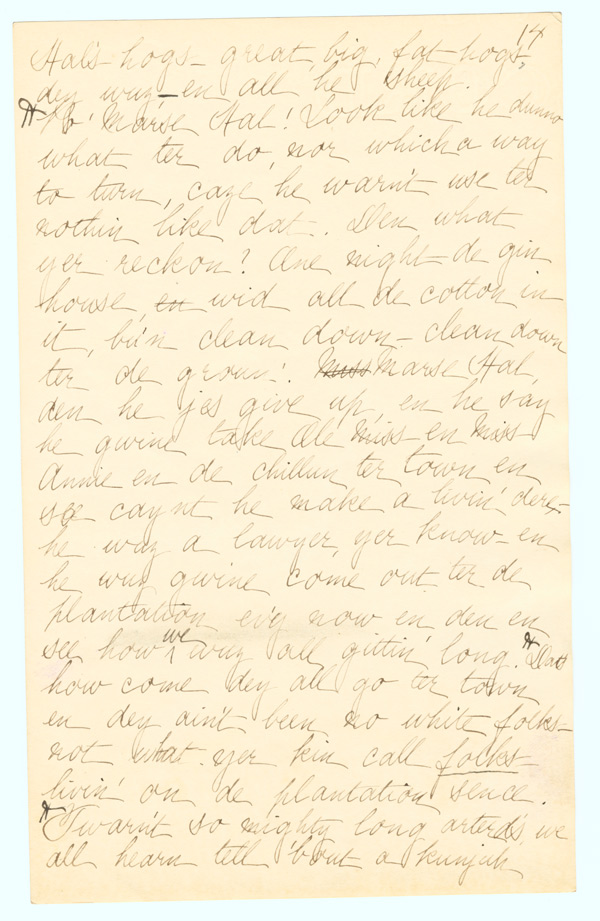 14
Hal's hogs - great, big, fat hogs,
dey wuz - en all he sheep.
Po' Marse Hal! Look like he dunno
what ter do, nor which a way
to turn, caze he warn't use ter
nothin like dat. Den what
yer reckon? One night de gin
house, en wid all de cotton in
it, bu'n clean down - clean down
ter de groun'. Miss Marse Hal,
den he jes give up, en he say
he gwine take Ole Miss en Miss
Annie en de chillun ter town en
see caynt he make a livin' dere, -
he wuz a lawyer, yer know - en
he wuz gwine come out ter de
plantation ev'y now en den en
see how we wuz all gittin' long. Dat's
how come dey all go ter town
en dey ain't been no white folks -
not what yer kin call folks -
livin' on de plantation sence.
Twarn't so mighty long arterd's we
all hearn tell 'bout a kunjuh